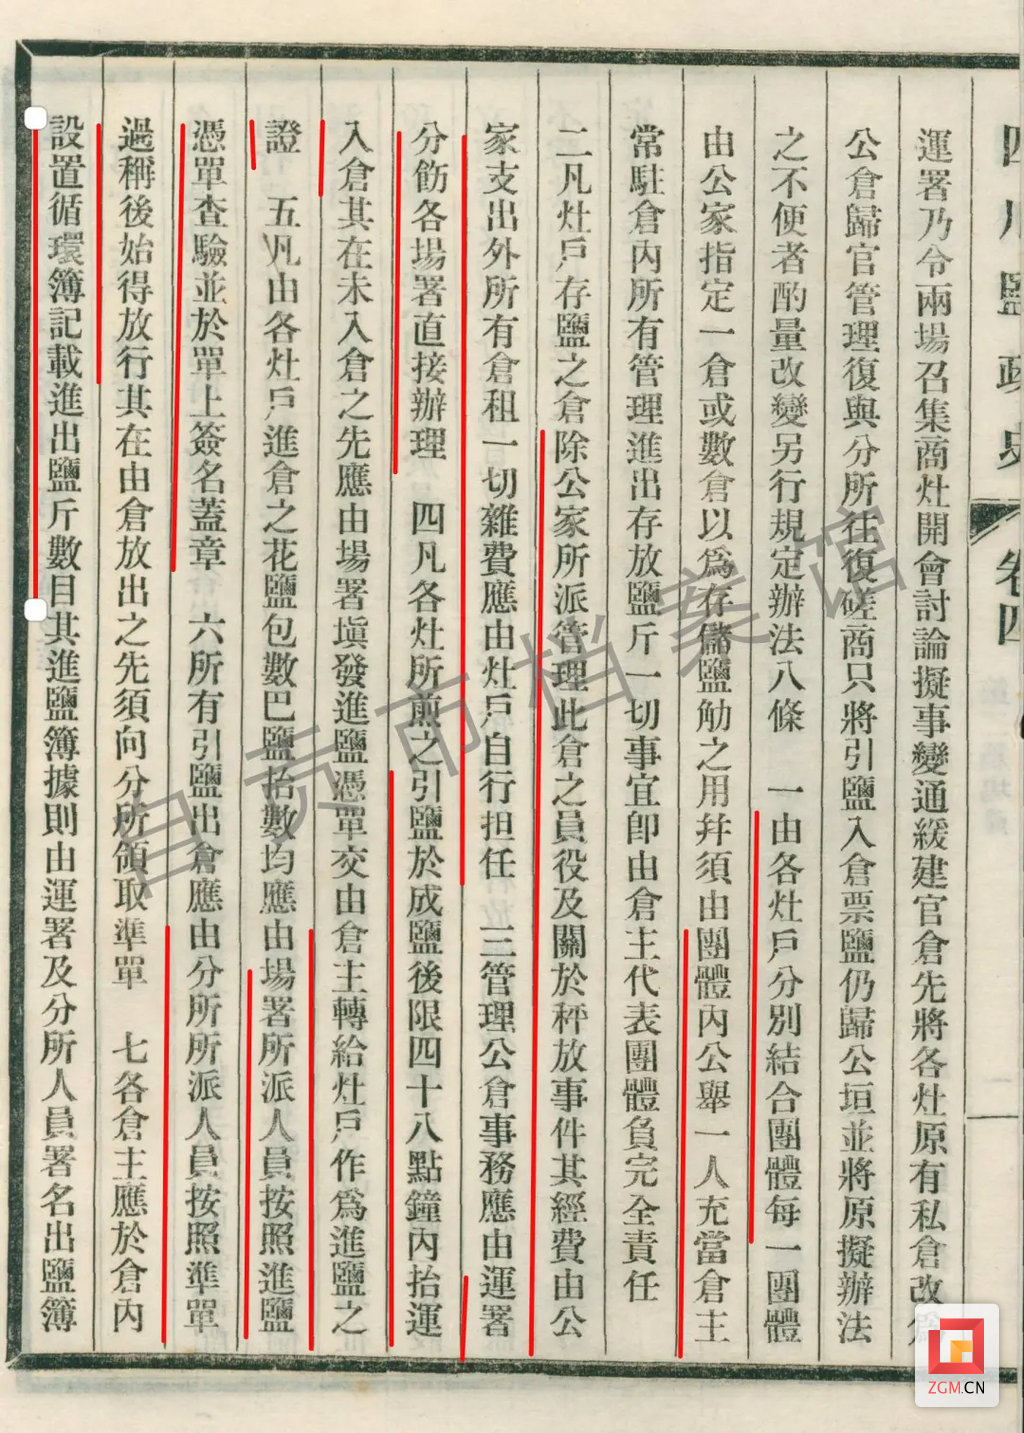 四川鹽政史 卷四
運署乃令兩場召集商灶開會討論擬事變通緩建官倉先將各灶原有私倉改為
公倉歸官管理復與分所往復磋商只將引鹽入倉票鹽仍歸公垣並將原擬辦法
之不便者酌量改變另行規定辦法八條 一由各灶戶分別結合團體每一團體
由公家指定一倉或數倉以爲存儲鹽觔之用幷須由團體內公舉一人充當倉主
常駐倉內所有管理進出存放鹽斤一切事宜卽由倉主代表團體負完全責任
二凡灶戶存鹽之倉除公家所派管理此倉之員役及關於秤放事件其經費由公
家支出外所有倉租一切雜費應由灶戶自行担任 三管理公倉事務應由運署
分飭各場署直接辦理 四凡各灶所煎之引鹽於成鹽後限四十八點鐘內抬運
入倉其在未入倉之先應由場署塡發進鹽憑單交由倉主轉給灶戶作爲進鹽之
證 五凡由各灶戶進倉之花鹽包數巴鹽抬數均應由場署所派人員按照進鹽
憑單查驗並於單上簽名蓋章 六所有引鹽出倉應由分所所派人員按照準單
過稱後始得放行其在由倉放出之先須向分所領取準單 七各倉主應於倉內
設置循環簿記載進出鹽斤數目其進鹽簿據則由運署及分所人員署名出鹽簿
自贡市档案馆
ZGM.CN